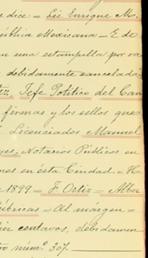 e dice - Lic Enrique Mo.
ública Mexicana - E. de
en una estampilla por va
debidamente cancelada
tez, Jefe Político del Can
firmas y los sellos que
Licenciados Manuel
yes, Notarios Públicos en
nes en ésta Ciudad. - H.
de 1899 - F. Ortiz - Albe
úbricas - Al márgen -
centavos, debidamen
núm. 307.